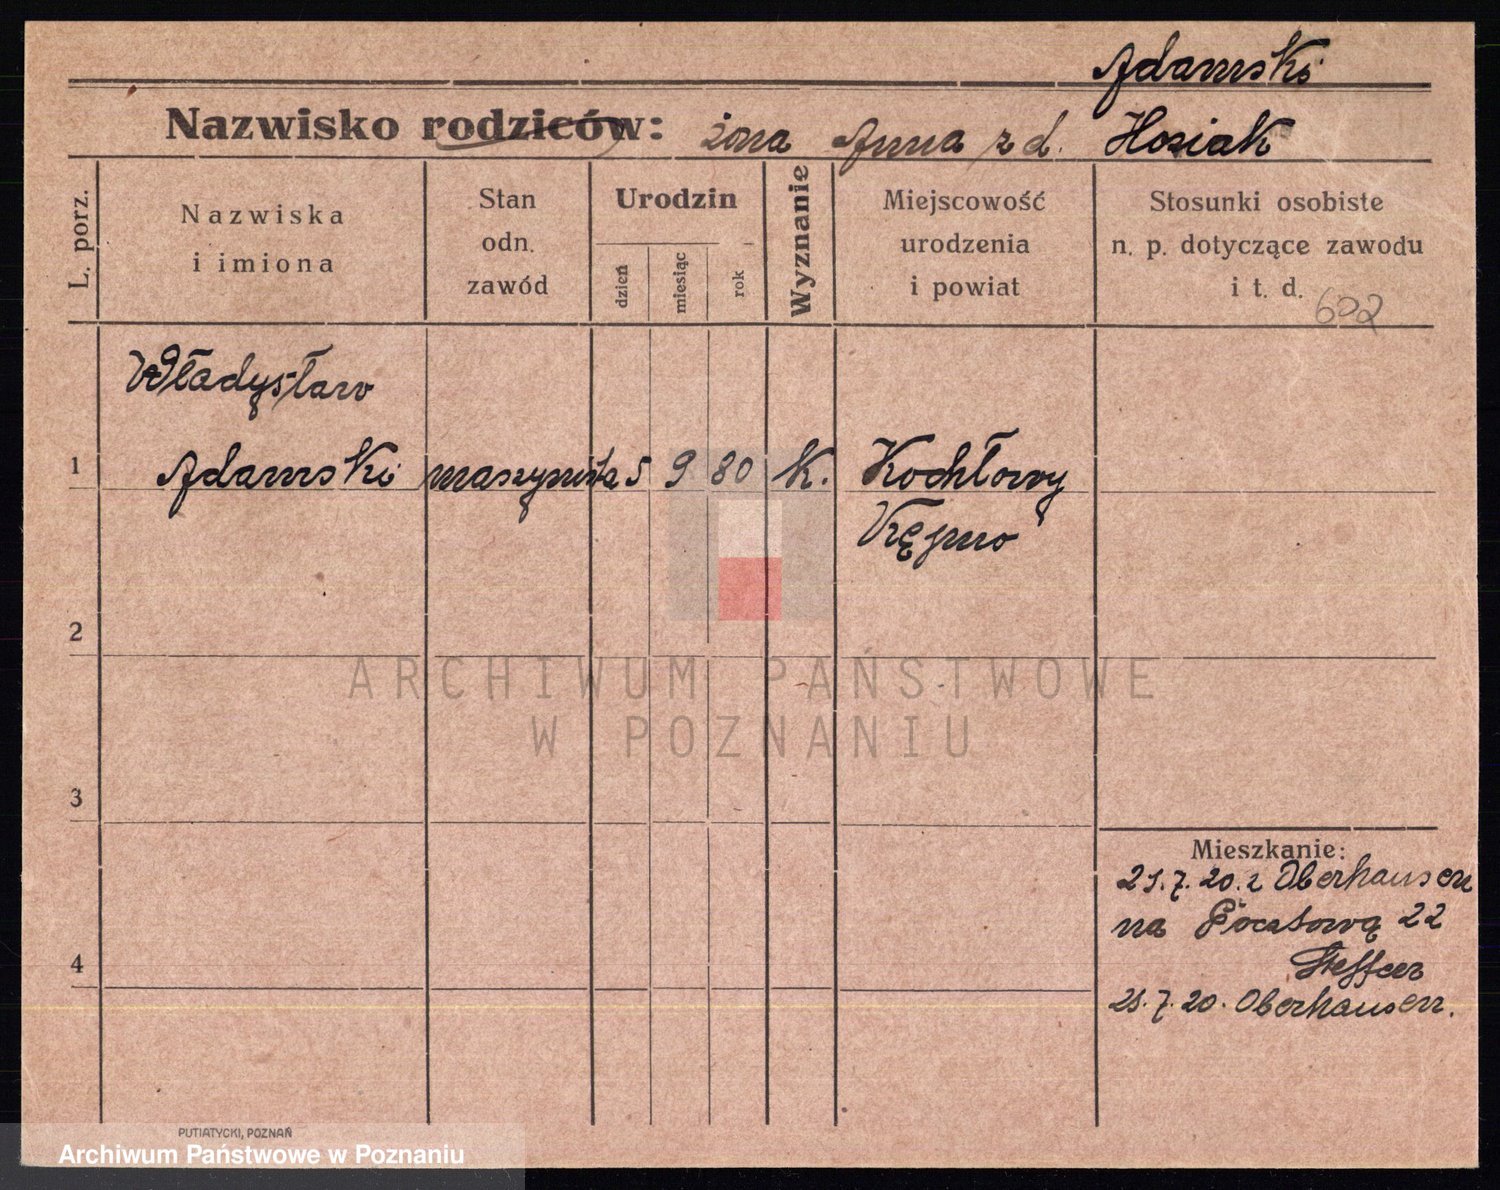 Adamski
Nazwisko rodziców: żona Anna z d. Hosiak
L. porz.
Nazwiska
i imiona
Stan
odn.
zawód
Urodzin
dzień
miesiąc
rok
Wyznanie
Miejscowość
urodzenia
i powiat
Stosunki osobiste
n. p. dotyczące zawodu
i t. d.
602
Władysław
1 Adamski maszynista 5 9 80 K. Kochłowy
Kępno
2
ARCHIWUM PAŃSTWOWE
W POZNANIU
3
Mieszkanie:
21.7.20. z Oberhausen
na Pocztową 22
4
Steffen
21.7.20. Oberhausen.
PUTIATYCKI, POZNAŃ
Archiwum Państwowe w Poznaniu